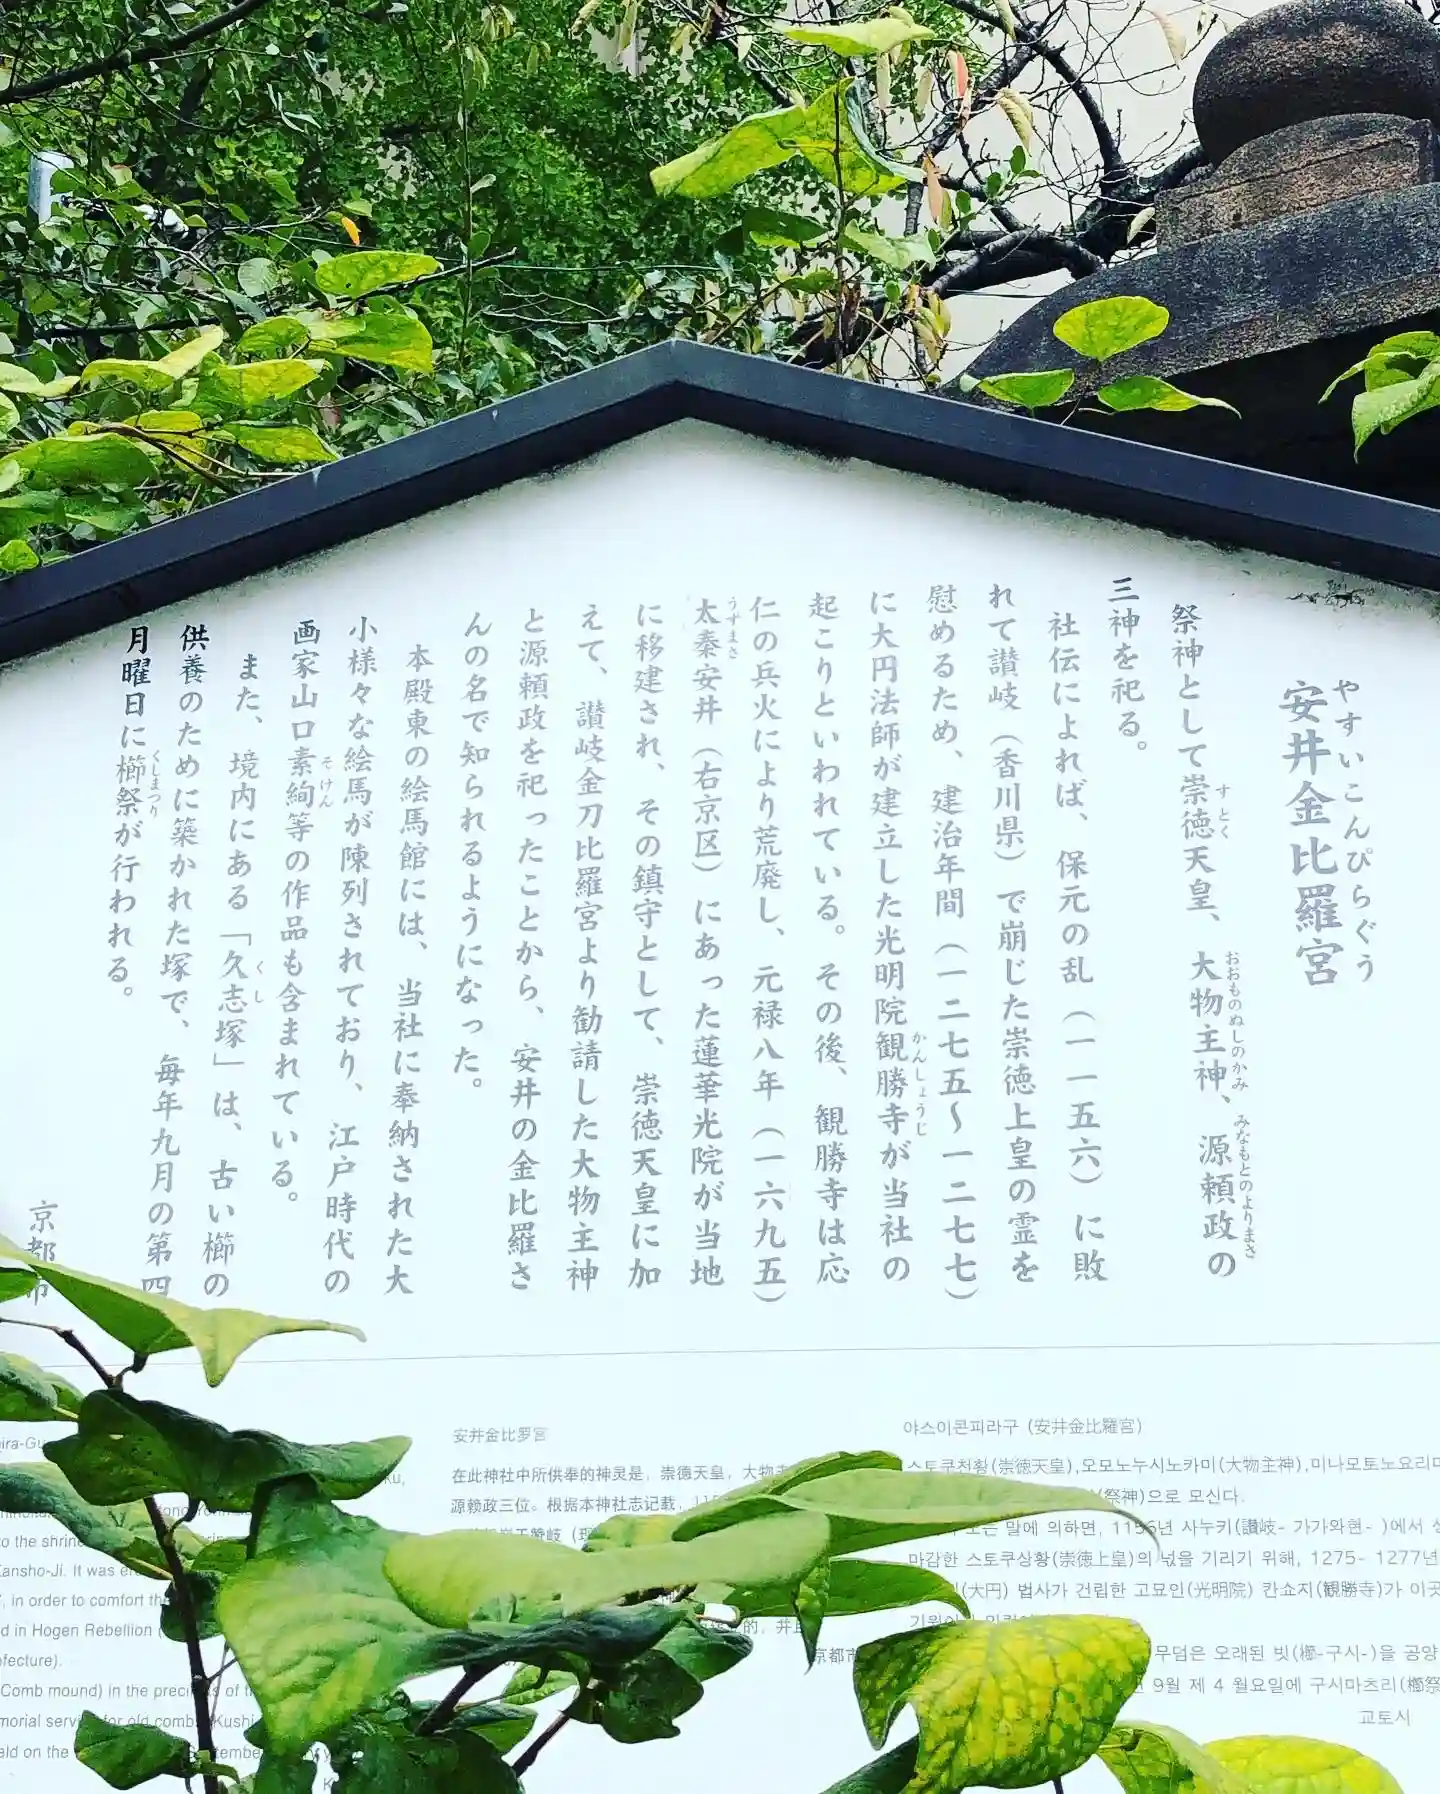 やすいこんぴらぐう
安井金比羅宮
祭神として崇徳天皇、大物主神、源頼政の
すとく
おおものぬしのかみ
みなもとのよりまさ
三神を祀る。
社伝によれば、保元の乱（一一五六）に敗
れて讃岐（香川県）で崩じた崇徳上皇の霊を
慰めるため、建治年間（一二七五〜一二七七）
に大円法師が建立した光明院観勝寺が当社の
かんしょうじ
起こりといわれている。その後、観勝寺は応
仁の兵火により荒廃し、元禄八年（一六九五）
太秦安井（右京区）にあった蓮華光院が当地
うずまさ
に移建され、その鎮守として、崇徳天皇に加
えて、讃岐金刀比羅宮より勧請した大物主神
と源頼政を祀ったことから、安井の金比羅さ
んの名で知られるようになった。
本殿東の絵馬館には、当社に奉納された大
小様々な絵馬が陳列されており、江戸時代の
画家山口素絢等の作品も含まれている。
そけん
また、境内にある「久志塚」は、古い櫛の
くし
供養のために築かれた塚で、毎年九月の第四
月曜日に櫛祭が行われる。
くしまつり
京都市
to the shrine
Kansho-Ji. It was
, in order to comfort the
d in Hogen Rebellion (
efecture).
(Comb mound) in the precincts of
for old comb
eld on the
安井金比罗宫
在此神社中所供奉的神灵是，崇德天皇，大物主
源赖政三位。根据本神社志记载，
京都市
야스이콘피라구 (安井金比羅宮)
스토쿠천황(崇徳天皇),오모노누시노카미(大物主神),미나모토노요리마
(祭神)으로 모신다.
말에 의하면, 1156년 사누키(讃岐- 가가와현- )에서
마감한 스토쿠상황(崇徳上皇)의 넋을 기리기 위해, 1275- 1277년
(大円) 법사가 건립한 고묘인(光明院) 칸쇼지(観勝寺)가 이곳
무덤은 오래된 빗(櫛-구시-)을 공양
9월 제 4 월요일에 구시마츠리(櫛祭
교토시